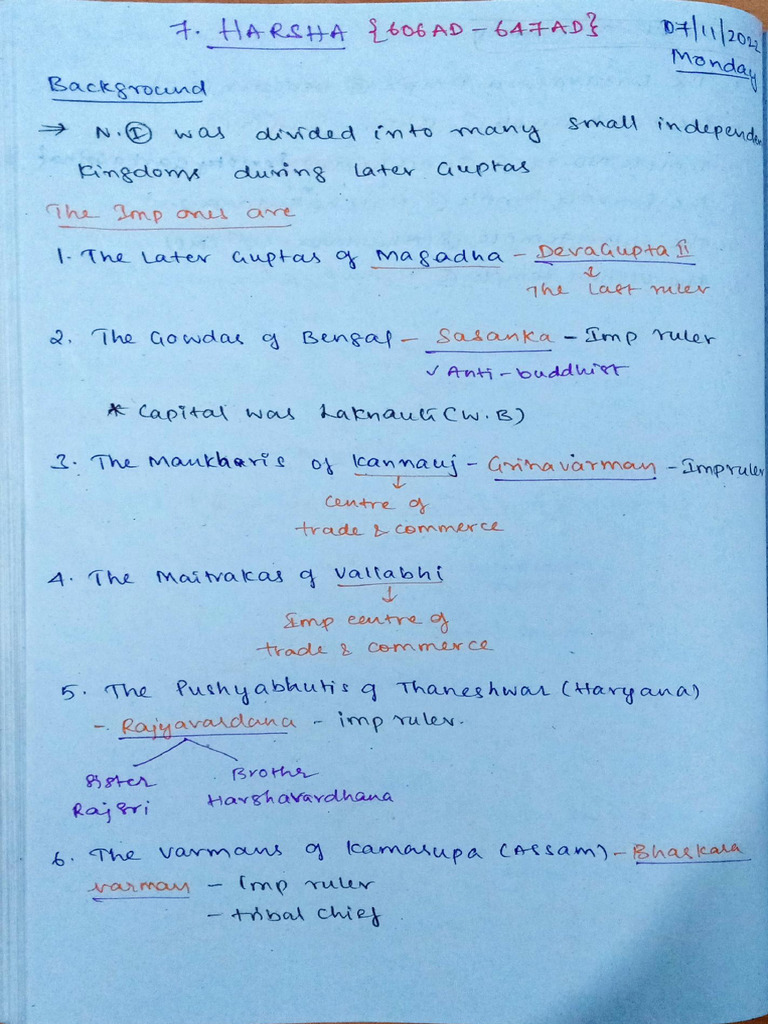 7. HARSHA {606AD - 647AD}
07/11/2022
Monday
Background
⇒ N.Ⓘ was divided into many small independen
Kingdoms during Later Guptas
The Imp ones are
1. The Later Guptas of Magadha - DevaGupta II
↓
The last ruler
2. The Gowdas of Bengal - Sasanka - Imp ruler
✓ Anti-buddhist
* Capital was Laknauti (W.B)
3. The Maukharis of Kannauj - Grihavarman - Imp ruler
↓
Centre of
trade & commerce
4. The Maitrakas of Vallabhi
↓
Imp centre of
trade & commerce
5. The Pushyabhutis of Thaneshwar (Haryana)
- Rajyavardana - imp ruler.
Sister Brother
Rajsri Harshavardhana
6. The Varmans of Kamarupa (Assam) - Bhaskara
varman - Imp ruler
- tribal chief